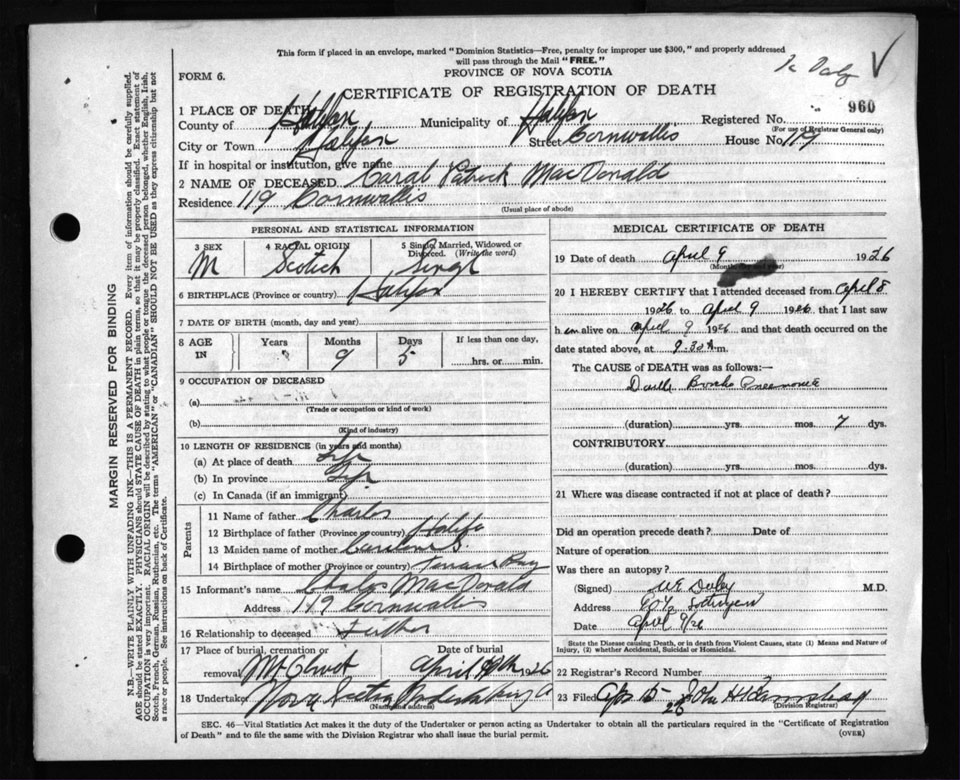 This form if placed in an envelope, marked "Dominion Statistics—Free, penalty for improper use $300," and properly addressed
will pass through the Mail "FREE."
FORM 6.
PROVINCE OF NOVA SCOTIA
CERTIFICATE OF REGISTRATION OF DEATH
960
1 PLACE OF DEATH
County of Halifax Municipality of Halifax Registered No.
(For use of Registrar General only)
City or Town Halifax Street Cornwallis House No. 119
If in hospital or institution, give name
2 NAME OF DECEASED Patrick MacDonald
Residence 119 Cornwallis
(Usual place of abode)
PERSONAL AND STATISTICAL INFORMATION
3 SEX 4 RACIAL ORIGIN 5 Single, Married, Widowed or
Divorced. (Write the word)
M Scotch Single
6 BIRTHPLACE (Province or country) Halifax
7 DATE OF BIRTH (month, day and year)
8 AGE Years Months Days If less than one day,
IN 9 5 hrs. or min.
9 OCCUPATION OF DECEASED
(a)
(Trade or occupation or kind of work)
(b)
(Kind of industry)
10 LENGTH OF RESIDENCE (in years and months)
(a) At place of death Life
(b) In province Life
(c) In Canada (if an immigrant)
Parents
11 Name of father Charles
12 Birthplace of father (Province or country)
13 Maiden name of mother
14 Birthplace of mother (Province or country) Bay
15 Informant's name MacDonald
Address 119 Cornwallis
16 Relationship to deceased Father
17 Place of burial, cremation or Date of burial
removal Mt Olivet April 1926
18 Undertaker Nova Scotia Undertaking Co
(Name and address)
MEDICAL CERTIFICATE OF DEATH
19 Date of death April 9 1926
(Month, day and year)
20 I HEREBY CERTIFY that I attended deceased from April 8
1926 to April 9 1926 that I last saw
h im alive on April 9 1926 and that death occurred on
date stated above, at 9.30 A m.
The CAUSE of DEATH was as follows:—
Double Broncho Pneumonia
(duration) yrs. mos. 7 dys.
CONTRIBUTORY
(duration) yrs. mos. dys.
21 Where was disease contracted if not at place of death?
Did an operation precede death? Date of
Nature of operation
Was there an autopsy?
(Signed) M.D.
Address
Date April 9/26
State the Disease causing Death, or in death from Violent Causes, state (1) Means and Nature of
Injury, (2) whether Accidental, Suicidal or Homicidal.
22 Registrar's Record Number
23 Filed 26 John H
(Division Registrar)
SEC. 46—Vital Statistics Act makes it the duty of the Undertaker or person acting as Undertaker to obtain all the particulars required in the "Certificate of Registration
of Death" and to file the same with the Division Registrar who shall issue the burial permit. (OVER)
MARGIN RESERVED FOR BINDING
N.B.—WRITE PLAINLY WITH UNFADING INK—THIS IS A PERMANENT RECORD. Every item of information should be carefully supplied.
AGE should be stated EXACTLY. PHYSICIANS should STATE CAUSE OF DEATH in plain terms, so that it may be properly classified. Exact statement of
OCCUPATION is very important. RACIAL ORIGIN will be described by stating to what people or tongue the deceased person belonged, whether English, Irish,
Scotch, French, German, Russian, Ruthenian, etc. The terms "AMERICAN" or "CANADIAN" SHOULD NOT BE USED as they express citizenship but not
a race or people. See instructions on back of Certificate.